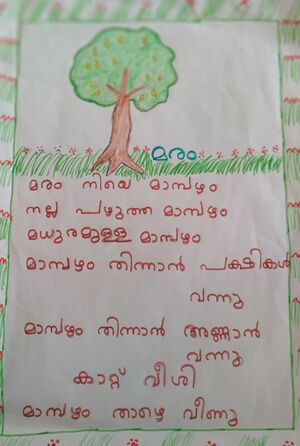 മരം
മരം നിയെ മാമ്പഴം
നല്ല പഴുത്ത മാമ്പഴം
മധുരമുള്ള മാമ്പഴം
മാമ്പഴം തിന്നാൻ പക്ഷികൾ
വന്നു
മാമ്പഴം തിന്നാൻ അണ്ണാൻ
വന്നു
കാറ്റ് വീശി
മാമ്പഴം താഴെ വീണു